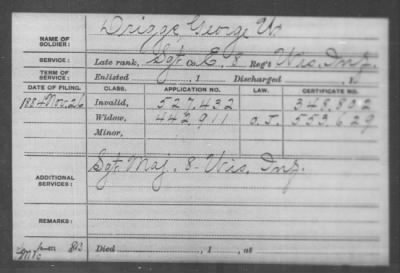 NAME OF SOLDIER: Driggs, George W.
SERVICE: Late rank, Sgt Co. E, 8 Reg't Wis. Inf.
TERM OF SERVICE: Enlisted , 1 Discharged , 1
DATE OF FILING. CLASS. APPLICATION NO. LAW. CERTIFICATE NO.
1884 Nov. 26 Invalid, 527,432 348,892
Widow, 442,911 O.L. 553,629
Minor,
ADDITIONAL SERVICES: Sgt. Maj. 8 Wis. Inf.
REMARKS:
Died , 1 , at